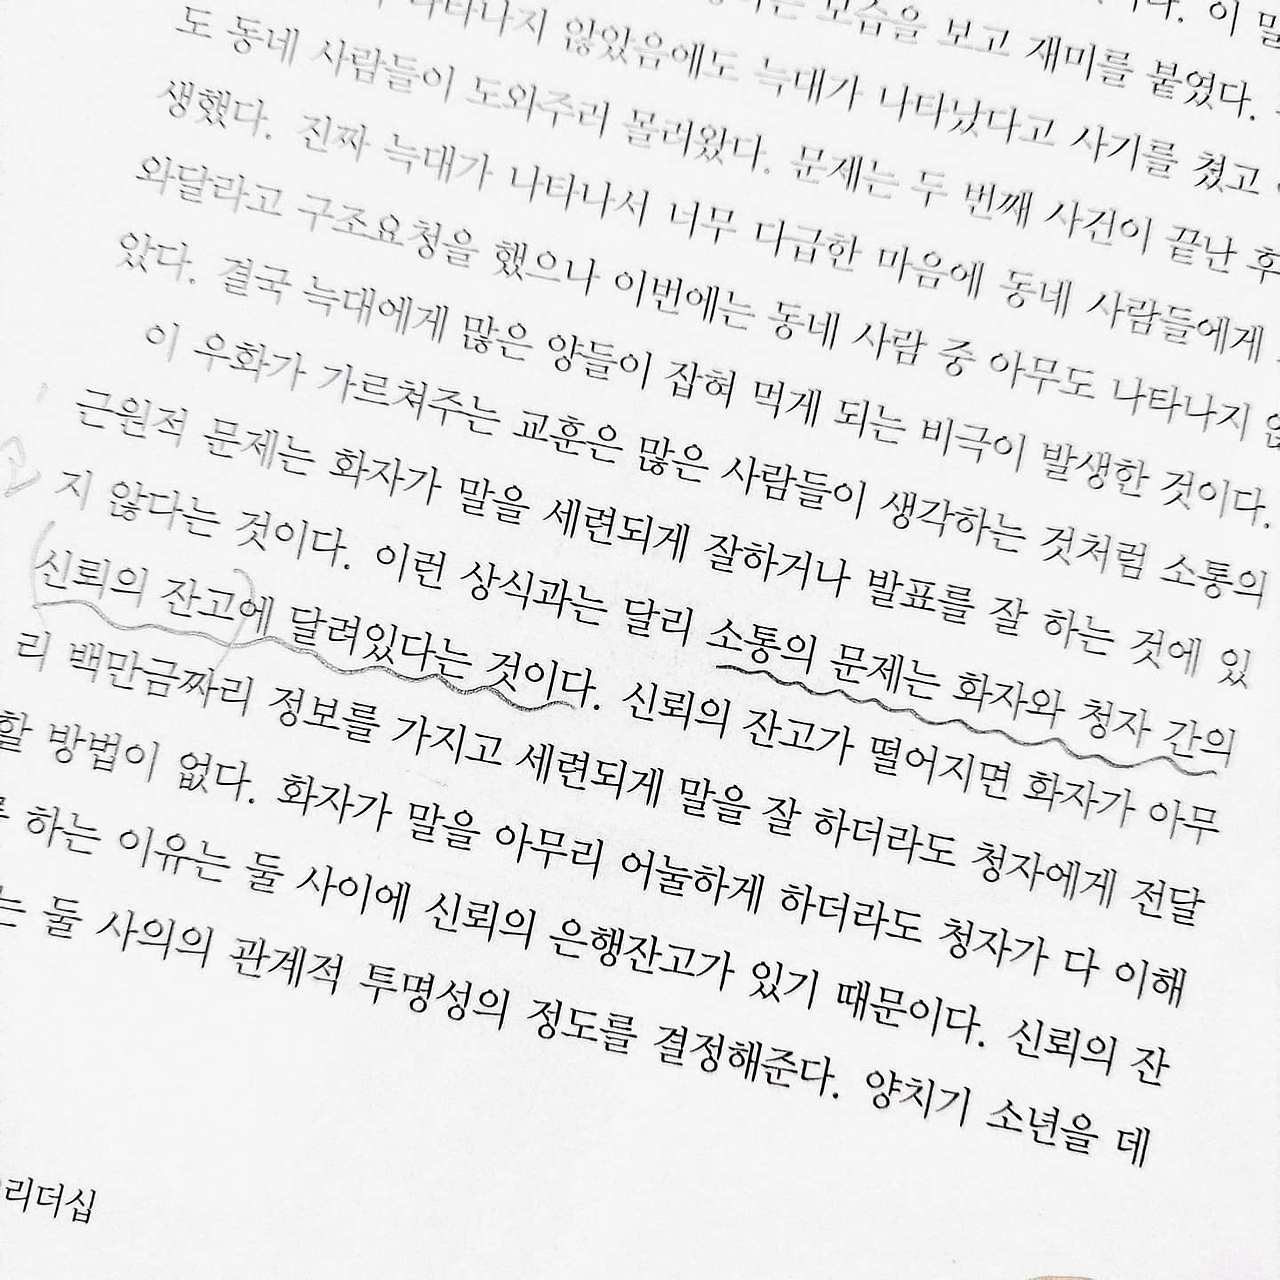 이
모습을 보고 재미를 붙였다.
나타나지 않았음에도 늑대가 나타났다고 사기를 쳤고
도 동네 사람들이 도와주러 몰려왔다. 문제는 두 번째 사건이 끝난 후
생했다. 진짜 늑대가 나타나서 너무 다급한 마음에 동네 사람들에게
와달라고 구조요청을 했으나 이번에는 동네 사람 중 아무도 나타나지 않
았다. 결국 늑대에게 많은 양들이 잡혀 먹게 되는 비극이 발생한 것이다.
이 우화가 가르쳐주는 교훈은 많은 사람들이 생각하는 것처럼 소통의
근원적 문제는 화자가 말을 세련되게 잘하거나 발표를 잘 하는 것에 있
지 않다는 것이다. 이런 상식과는 달리 소통의 문제는 화자와 청자 간의
신뢰의 잔고에 달려있다는 것이다. 신뢰의 잔고가 떨어지면 화자가 아무
리 백만금짜리 정보를 가지고 세련되게 말을 잘 하더라도 청자에게 전달
할 방법이 없다. 화자가 말을 아무리 어눌하게 하더라도 청자가 다 이해
하는 이유는 둘 사이에 신뢰의 은행잔고가 있기 때문이다. 신뢰의 잔
는 둘 사의의 관계적 투명성의 정도를 결정해준다. 양치기 소년을 데
리더십